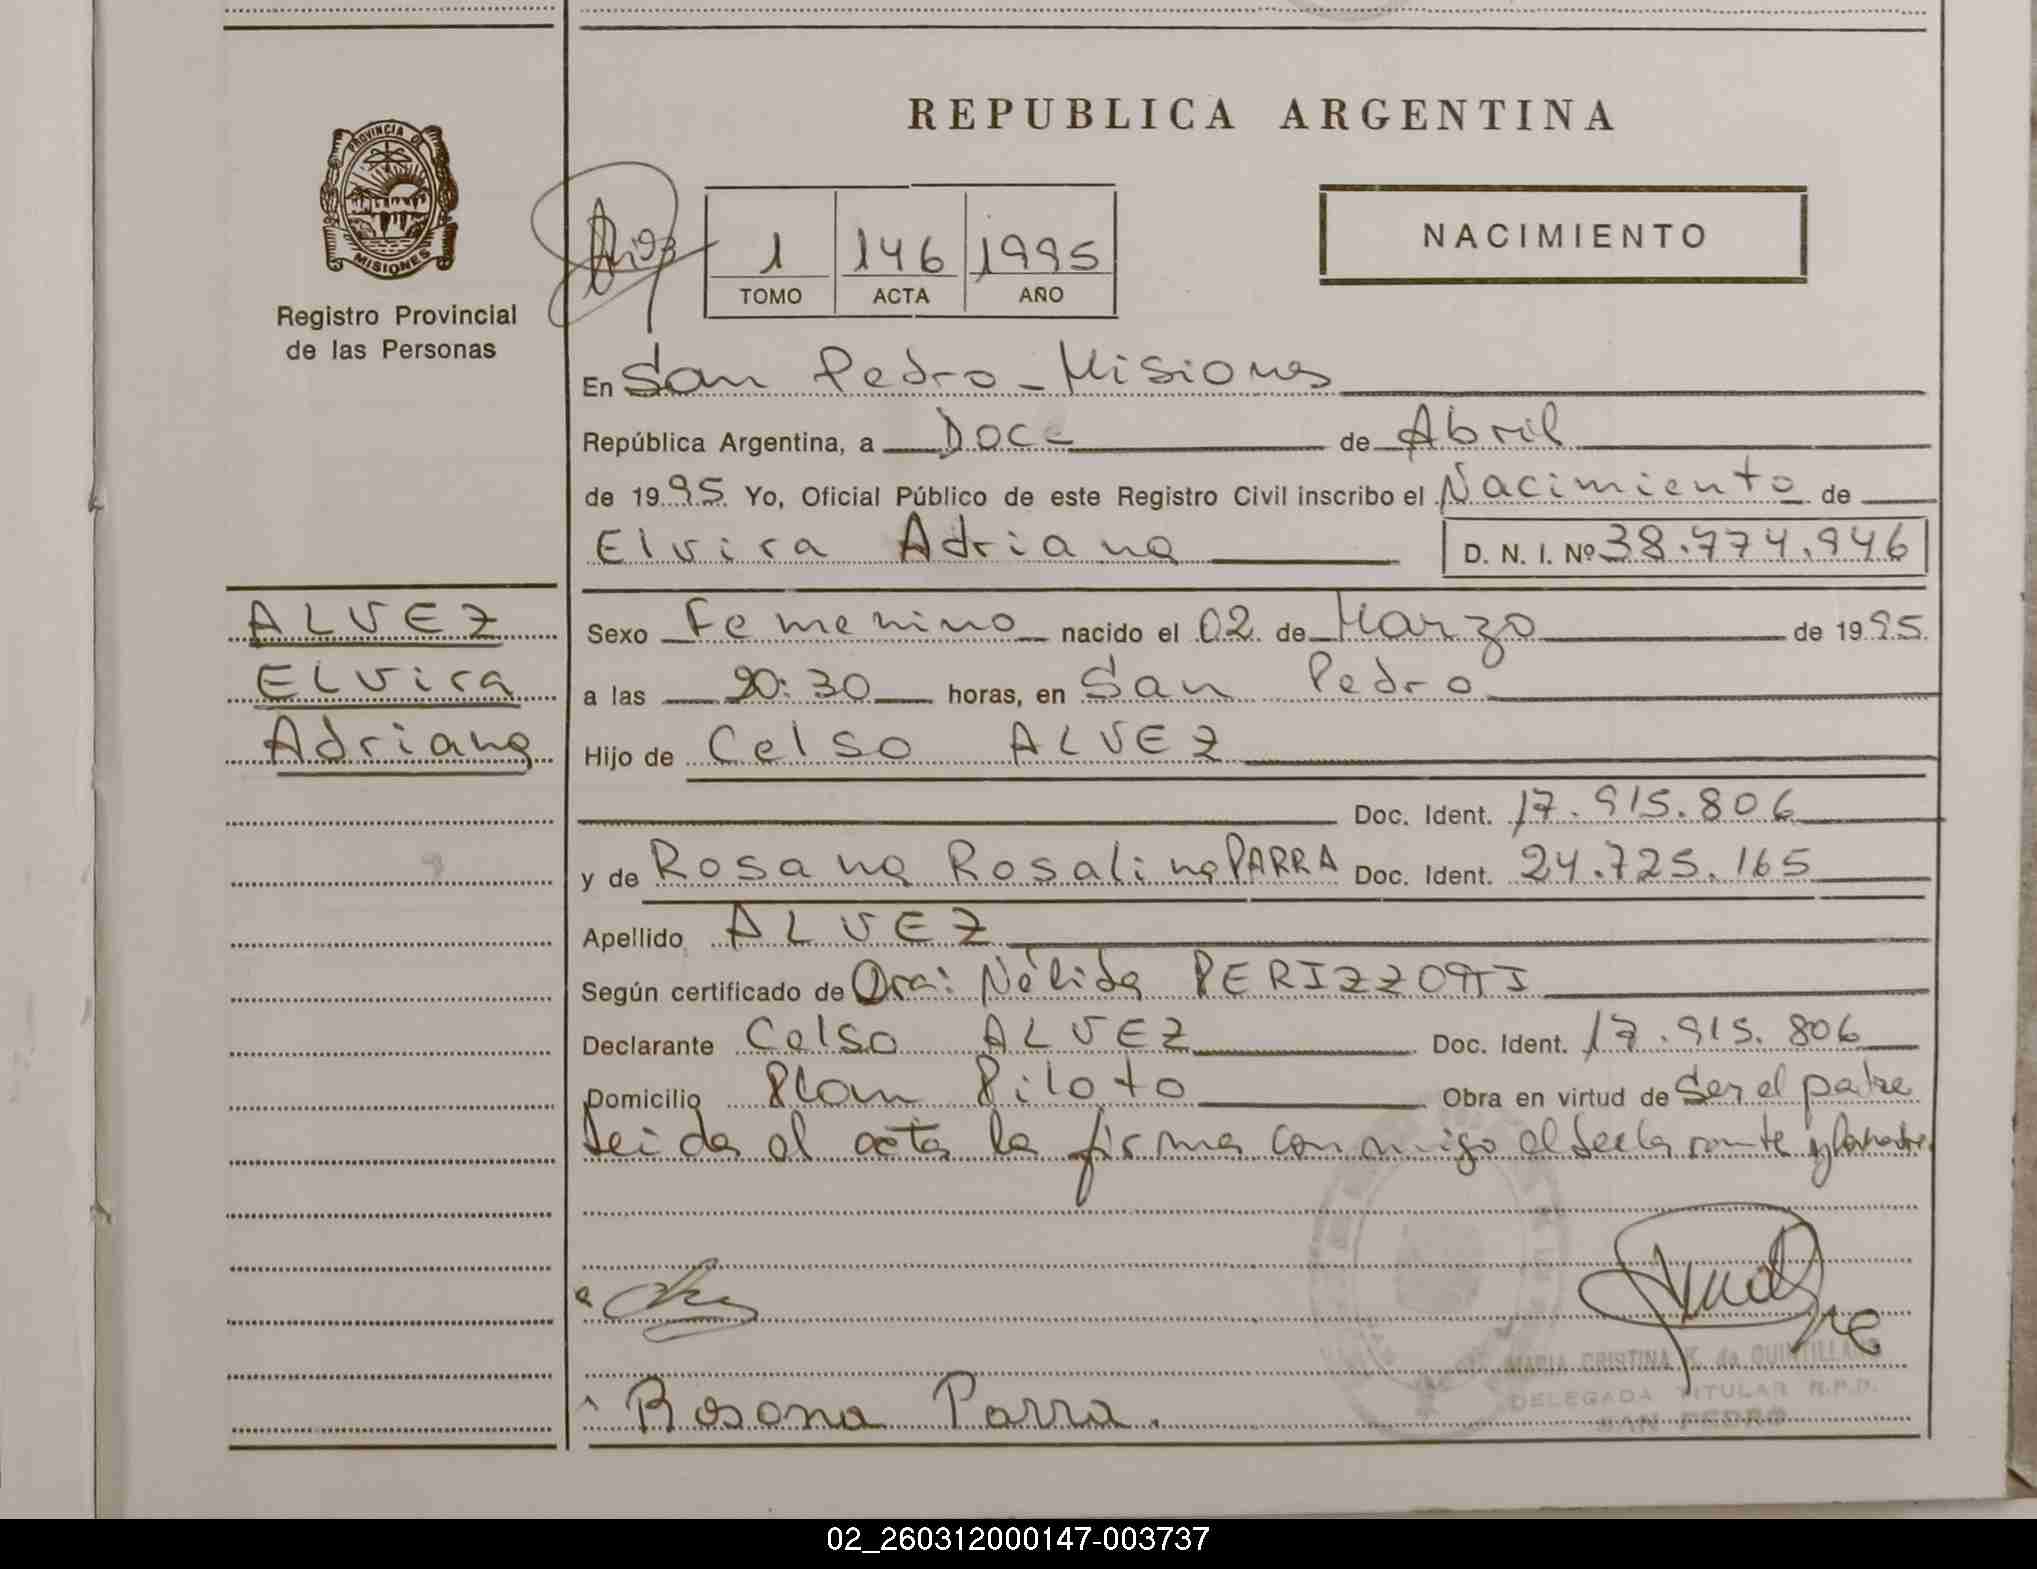 REPUBLICA ARGENTINA
PROVINCIA DE
MISIONES
Registro Provincial
de las Personas
1 146 1995
TOMO ACTA AÑO
NACIMIENTO
En San Pedro - Misiones
República Argentina, a Doce de Abril
de 1995 Yo, Oficial Público de este Registro Civil inscribo el Nacimiento de
Elvira Adriana D. N. I. Nº 38.774.946
ALVEZ
Elvira
Adriana
Sexo Femenino nacido el 02 de Marzo de 1995.
a las 20:30 horas, en San Pedro
Hijo de Celso ALVEZ
Doc. Ident. 17.915.806
y de Rosana Rosalina PARRA Doc. Ident. 24.725.165
Apellido ALVEZ
Según certificado de Dra: Nélida PERIZZOTTI
Declarante Celso ALVEZ Doc. Ident. 17.915.806
Domicilio Plan Piloto Obra en virtud de Ser el padre
Leida el acta la firma conmigo el declarante y la madre
Rosana Parra.
MARIA CRISTINA K. de QUINTILLAN
DELEGADA TITULAR R.P.P.
SAN PEDRO
02_260312000147-003737